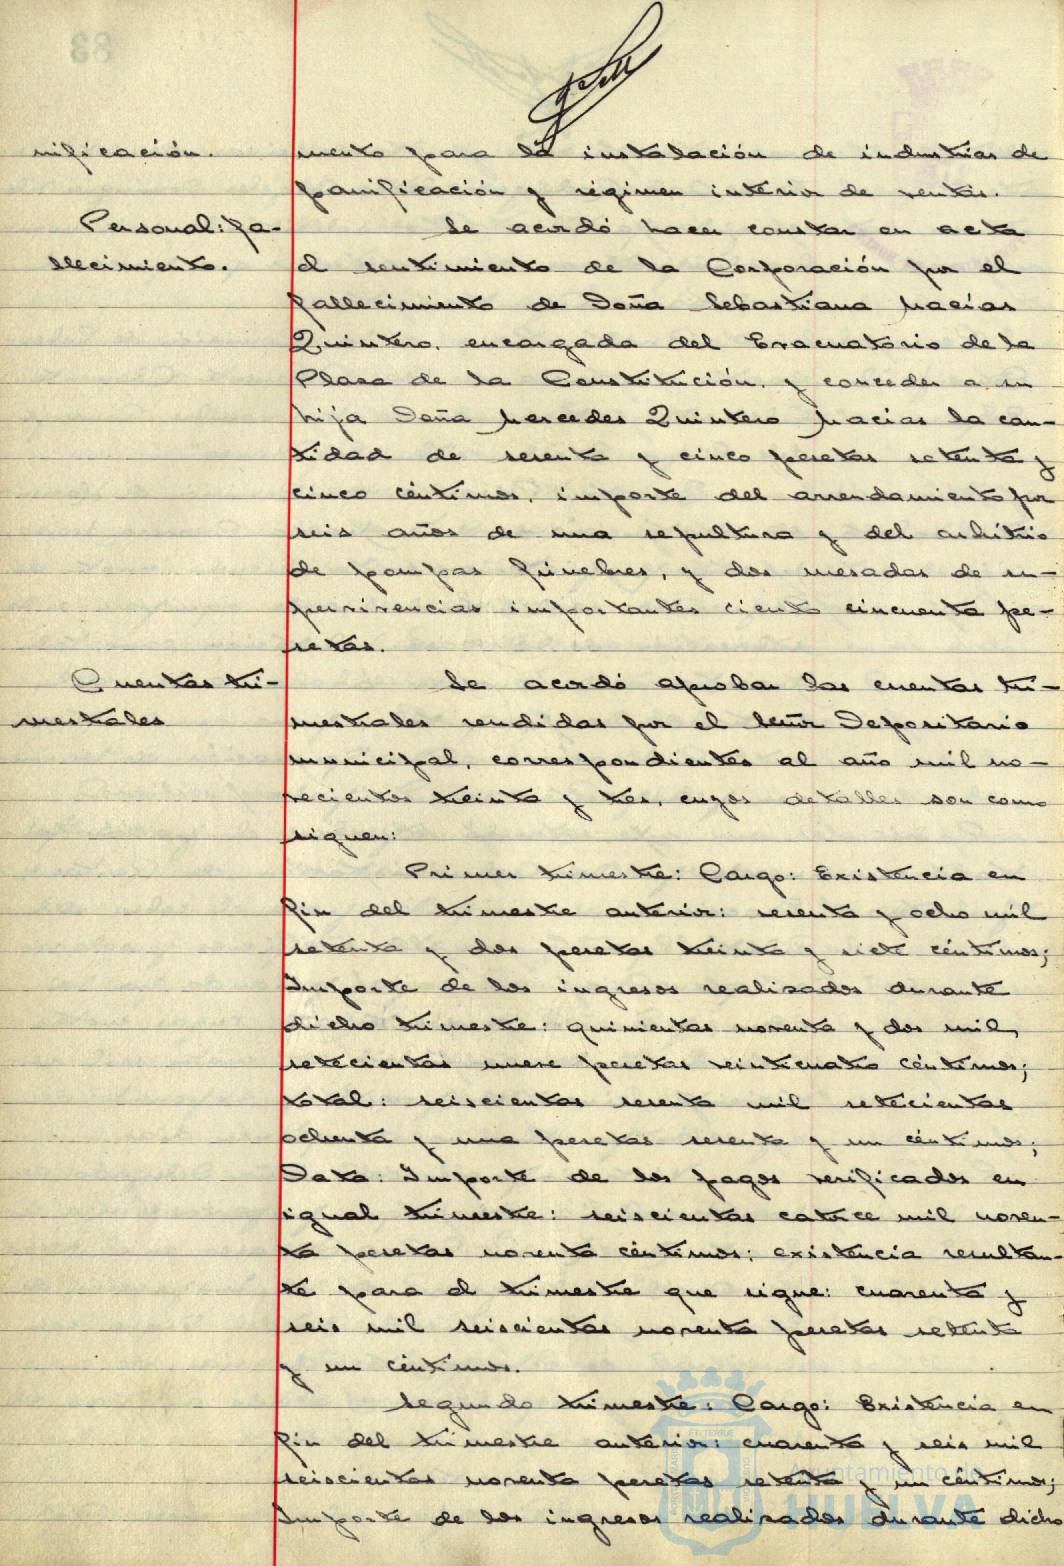 nificación.
mento para la instalación de industrias de
panificación y régimen interior de ventas.
Personal: fa-
llecimiento.
Se acordó hacer constar en acta
el sentimiento de la Corporación por el
fallecimiento de Doña Sebastiana Macías
Quintero, encargada del Evacuatorio de la
Plaza de la Constitución, y conceder a su
hija Doña Mercedes Quintero Macías la can-
tidad de sesenta y cinco pesetas setenta y
cinco céntimos, importe del arrendamiento por
seis años de una sepultura y del arbitrio
de pompas fúnebres, y dos mesadas de su-
pervivencias importantes ciento cincuenta pe-
setas.
Cuentas tri-
mestrales
Se acordó aprobar las cuentas tri-
mestrales rendidas por el Señor Depositario
municipal, correspondientes al año mil no-
vecientos treinta y tres, cuyos detalles son como
siguen:
Primer trimestre: Cargo: Existencia en
fin del trimestre anterior: sesenta y ocho mil
setenta y dos pesetas treinta y siete céntimos;
Importe de los ingresos realizados durante
dicho trimestre: quinientas noventa y dos mil,
setecientas nueve pesetas veinticuatro céntimos;
total: seiscientas sesenta mil setecientas
ochenta y una pesetas sesenta y un céntimos;
Data: Importe de los pagos verificados en
igual trimestre: seiscientas catorce mil noven-
ta pesetas noventa céntimos; existencia resultan-
te para el trimestre que sigue: cuarenta y
seis mil seiscientas noventa pesetas setenta
y un céntimos.
Segundo trimestre: Cargo: Existencia en
fin del trimestre anterior: cuarenta y seis mil
seiscientas noventa pesetas setenta y un céntimos;
Importe de los ingresos realizados durante dicho
Ayuntamiento de
HUELVA